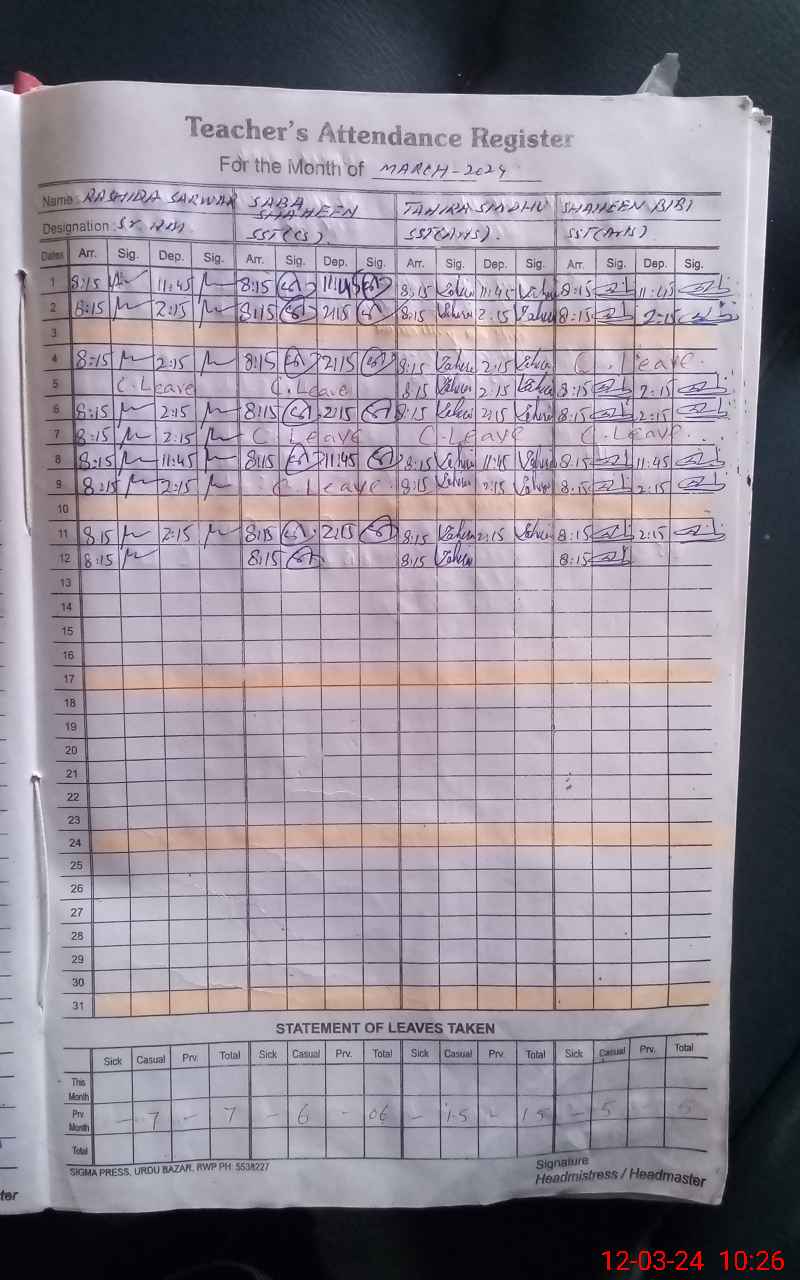 Teacher's Attendance Register
For the Month of MARCH-2024
Name: RASHIDA SARWAR SABA SHAHEEN TAHIRA SINDHU SHAHEEN BIBI
Designation: SST(CS). SST(Arts). SST(Arts)
Dates Arr. Sig. Dep. Sig. Arr. Sig. Dep. Sig. Arr. Sig. Dep. Sig. Arr. Sig. Dep. Sig.
1 8:15 11:45 8:15 11:45 8:15 11:45 8:15 11:45
2 8:15 2:15 8:15 2:15 8:15 2:15 8:15 2:15
3
4 8:15 2:15 8:15 2:15 8:15 2:15 C. Leave.
5 C. Leave C. Leave 8:15 2:15 8:15 2:15
6 8:15 2:15 8:15 2:15 8:15 2:15 8:15 2:15
7 8:15 2:15 C. Leave C. Leave C. Leave.
8 8:15 11:45 8:15 11:45 8:15 11:45 8:15 11:45
9 8:15 2:15 C. Leave 8:15 2:15 8:15 2:15
10
11 8:15 2:15 8:15 2:15 8:15 2:15 8:15 2:15
12 8:15 8:15 8:15 8:15
13
14
15
16
17
18
19
20
21
22
23
24
25
26
27
28
29
30
31
STATEMENT OF LEAVES TAKEN
Sick Casual Prv. Total Sick Casual Prv. Total Sick Casual Prv. Total Sick Casual Prv. Total
This Month
Prv Month - 7 - 7 - 6 - 06 - 1.5 - 1.5 - 5 5
Total
SIGMA PRESS, URDU BAZAR, RWP PH: 5538227
Signature
Headmistress / Headmaster
ter
12-03-24 10:26